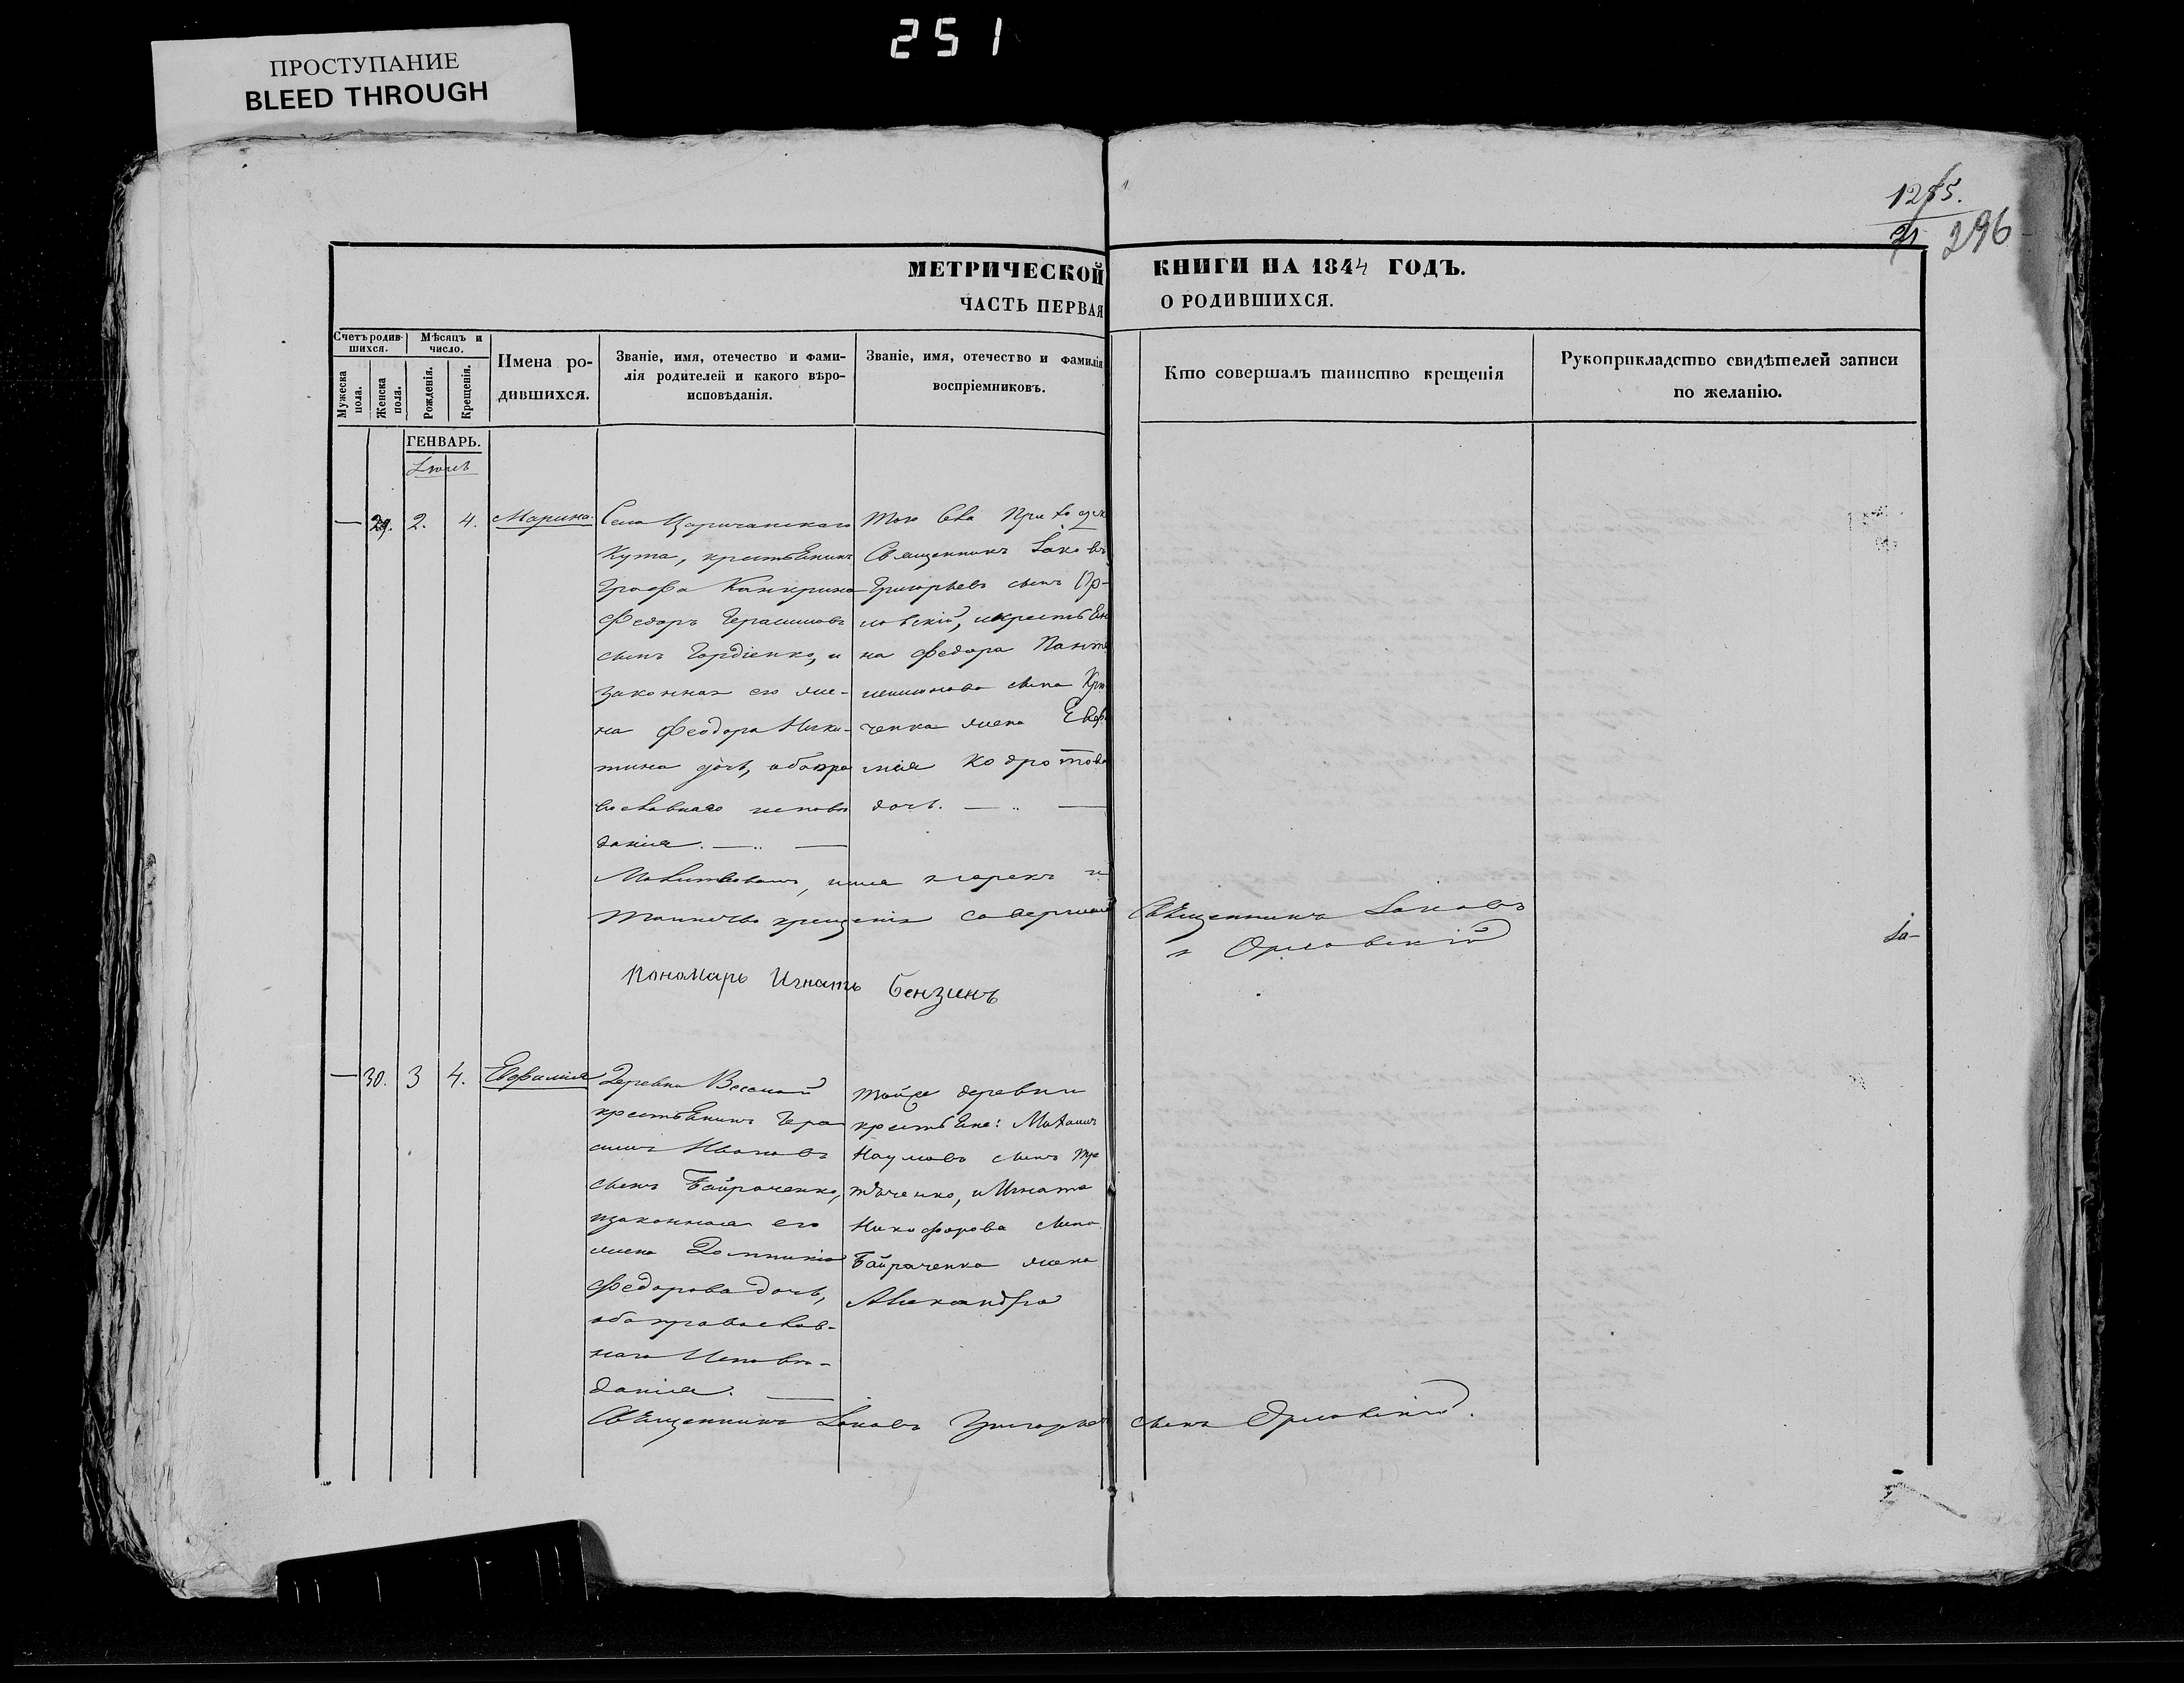 251
ПРОСТУПАНИЕ
BLEED THROUGH
1285.
296
МЕТРИЧЕСКОЙ КНИГИ НА 1844 ГОДЪ.
ЧАСТЬ ПЕРВАЯ О РОДИВШИХСЯ.
Счетъ родив-
шихся.
Мужеска
пола.
Женска
пола.
Мѣсяцъ и
число.
Рожденія.
Крещенія.
Имена ро-
дившихся.
Званіе, имя, отечество и фами-
лія родителей и какого вѣро-
исповѣданія.
Званіе, имя, отечество и фамилія
воспріемниковъ.
Кто совершалъ таинство крещенія
Рукоприкладство свидѣтелей записи
по желанію.
ГЕНВАРЬ.
— 29. 2. 4. Марина.
Села Царичанскаго
Кута, крестьянинъ
Графа Канкрина
Федоръ Герасимовъ
сынъ Гордіенко, и
законная его же-
на Феодора Ники-
тина дочь, оба пра
вославнаго исповѣ
данія. — .. —
того села
Священникъ Іаковъ
Григорьевъ сынъ Ор-
ловскій, и крестьян
на Федора Панте
леимонова сына
ченка жена Евфи
мія Кодротова
дочь. — .. —
Молитвовалъ, имя нарекъ и
таинство крещенія совершилъ Священникъ Іаковъ
Орловскій
Іа-
Пономарь Игнатъ Бензинъ
— 30. 3 4. Евфимія
Деревни Веселой
крестьянинъ Гера
симъ Ивановъ
сынъ Байраченко,
и законная его
жена Домникія
Федорова дочь,
оба православ-
наго Исповѣ-
данія. —
тойже деревни
крестьяне: Михаилъ
Наумовъ сынъ
и Игната
Никофорова сына
Байраченка жена
Александра
Священникъ Іаковъ Григорьевъ сынъ Орловскій.